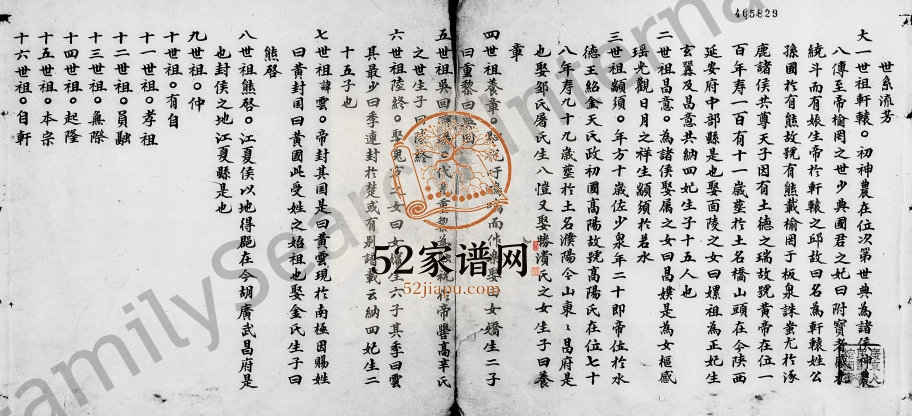 465829
世系流芳
大一世祖軒轅。初神農在位次第世典為諸侯神農
八傳至帝榆罔之世少典國君之妃曰附寶者感
統斗而有娠生帝於軒轅之邱故曰名為軒轅姓公
孫國於有熊故號有熊戴榆罔于板泉誅蚩尤於涿
鹿諸侯共尊天子因有土德之瑞故號黄帝在位一
百年寿一百有十一歲塟於土名橋山頭在今陝西
延安府中部縣是也娶面陵之女曰嫘祖為正妃生
玄囂及昌意共納四妃生子十五人也
二世祖昌意。為諸侯娶之女曰昌嫫是為女樞感
瑶光觀日月之祥生顓頊於若水
三世顓頊。年方十歲佐少泉年二十即帝位於水
德王紹金天氏政初國髙陽故號髙陽氏在位七十
八年寿九十九歲塟於土名濮陽今山東〻昌府是
也娶鄒氏屠氏生八愷又娶勝濆氏之女生子曰養
章
四世祖養章。而作娶曰女嬌生二子
曰重黎曰
五世祖吳回代重黎帝嚳高辛氏
之世生子曰陸終
六世祖陸終。娶鬼方之女曰女生六子其季曰雲
其最少曰季連封於楚或有別諸載云納四妃生二
十五子也
七世祖諱雲。帝封其國是曰黄雲現於南極因賜姓
曰黄封國曰黄國此受姓之始祖也娶金氏生子曰
熊啓
八世祖熊啓。江夏侯以地得郡在今胡廣武昌府是
也封侯之地江夏縣是也
九世祖。仲
十世祖。有自
十一世祖。孝祖
十二世祖。員融
十三世祖。無際
十四世祖。起隆
十五世祖。本宗
十六世祖。自軒
52家谱网
52jiapu.com
FamilySearch International